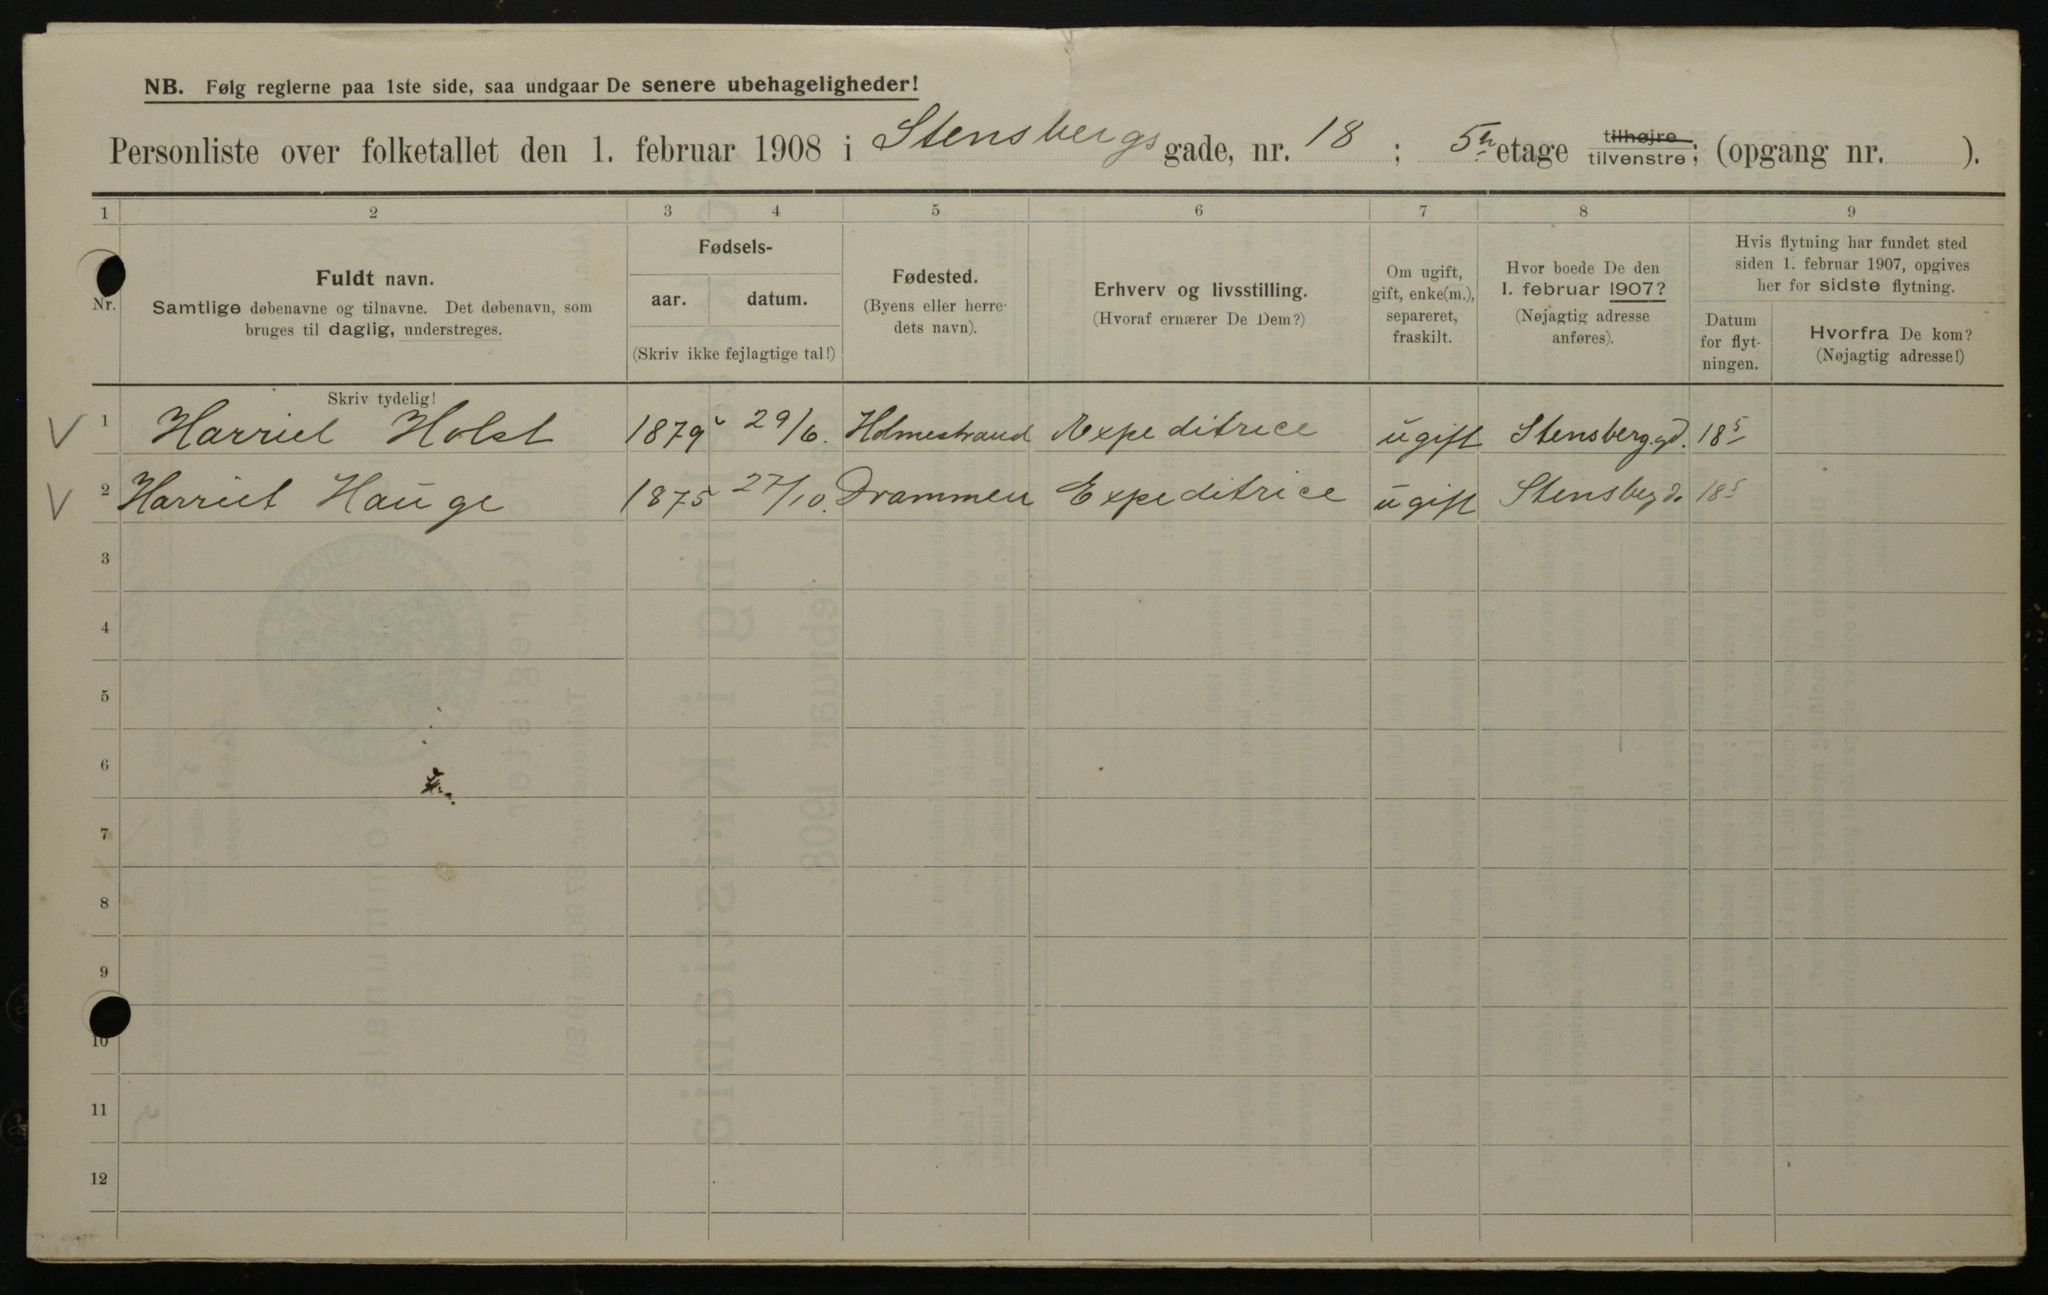 NB. Følg reglerne paa 1ste side, saa undgaar De senere ubehageligheder!
Personliste over folketallet den 1. februar 1908 i Stensbergs gade, nr. 18 ; 5te etage tilhøjre tilvenstre; (opgang nr. ).
1 2 3 4 5 6 7 8 9
Nr.
Fuldt navn.
Samtlige døbenavne og tilnavne. Det døbenavn, som
bruges til daglig, understreges.
Fødsels-
aar. datum.
(Skriv ikke fejlagtige tal!)
Fødested.
(Byens eller herre-
dets navn).
Erhverv og livsstilling.
(Hvoraf ernærer De Dem?)
Om ugift,
gift, enke(m.),
separeret,
fraskilt.
Hvor boede De den
1. februar 1907?
(Nøjagtig adresse
anføres).
Hvis flytning har fundet sted
siden 1. februar 1907, opgives
her for sidste flytning.
Datum
for flyt-
ningen.
Hvorfra De kom?
(Nøjagtig adresse!)
Skriv tydelig!
V 1 Harriet Holst 1879 29/6. Holmestrand Expeditrice ugift Stensberg.gd. 18 5
V 2 Harriet Hauge 1875 27/10. Drammen Expeditrice ugift Stensbergd. 18 5
3
4
5
6
7
8
9
10
11
12